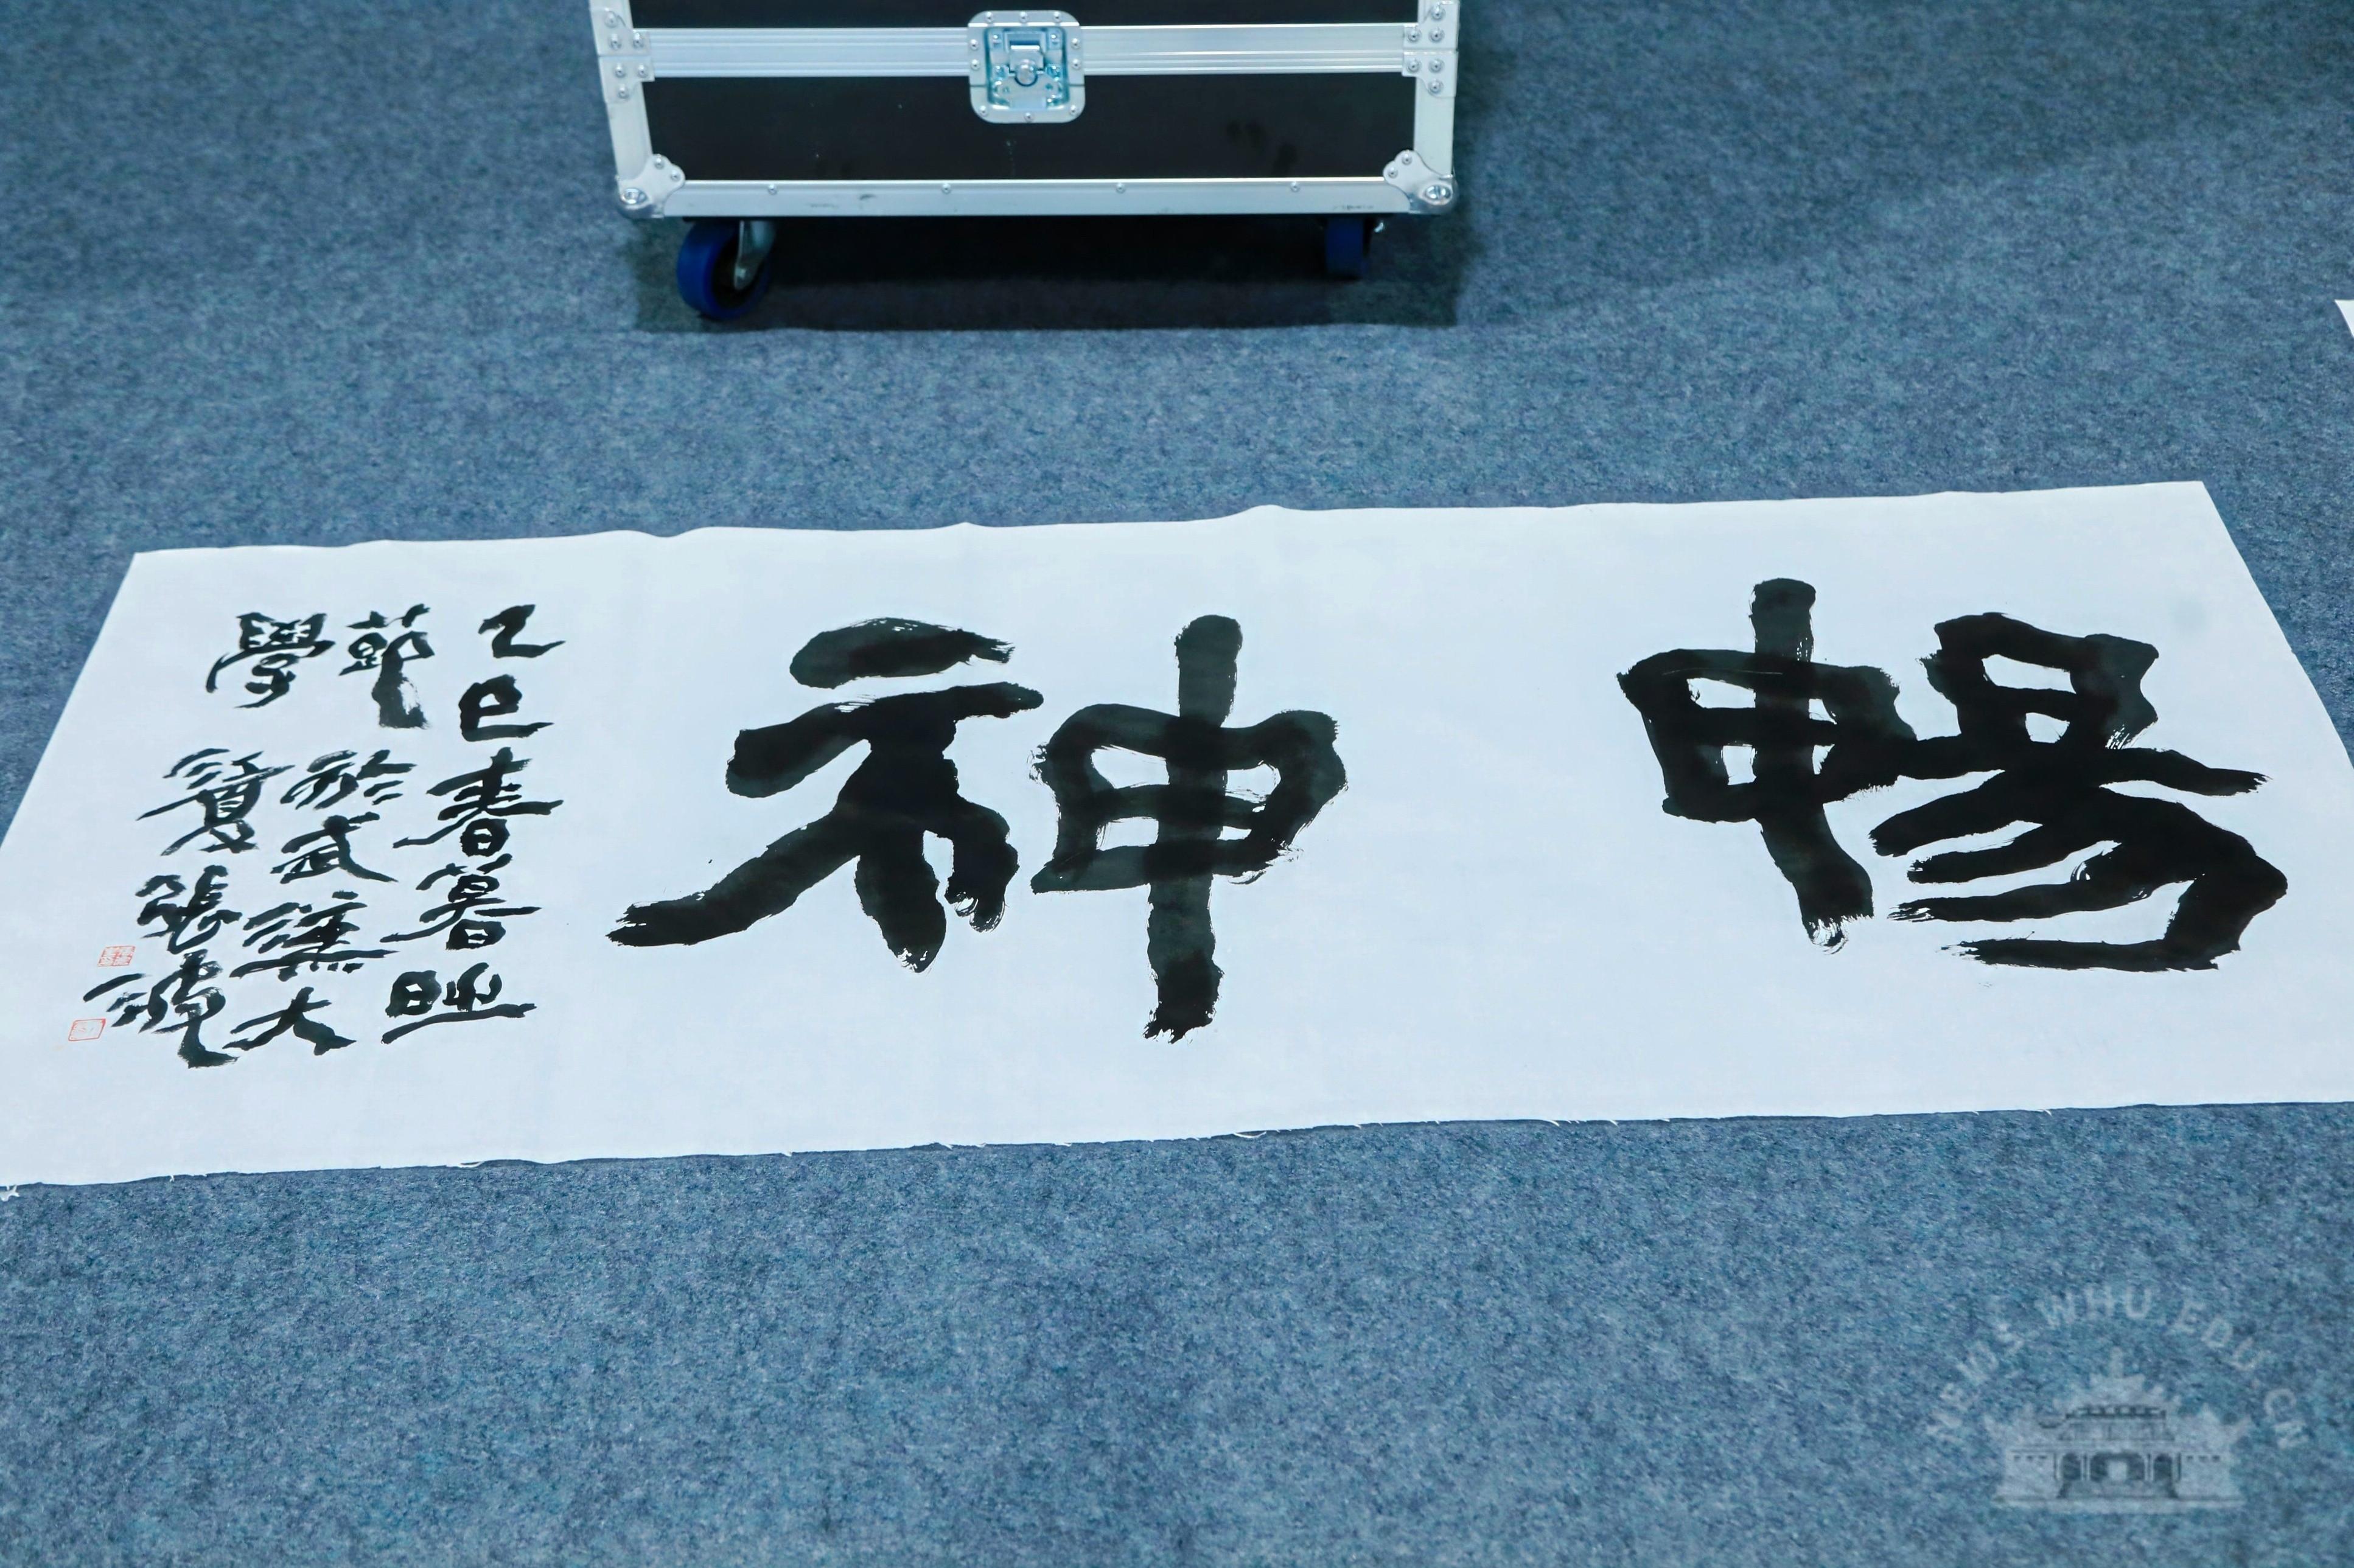 暢神
乙巳春暮
節於武漢大
學張
NEWS.WHU.EDU.CN